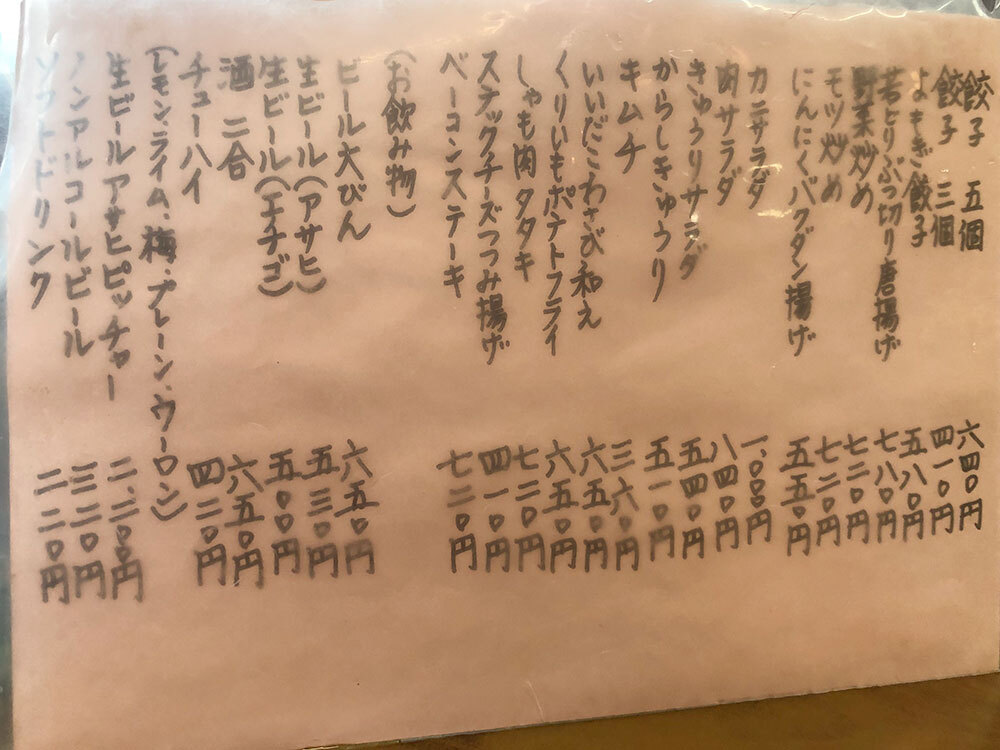 餃子 五個 六四〇円
餃子 三個 四一〇円
よもぎ餃子 五八〇円
若とりぶつ切り唐揚げ 七八〇円
野菜炒め 七二〇円
モツ炒め 七二〇円
にんにくバクダン揚げ 五五〇円
カニサラダ 一、〇〇〇円
肉サラダ 八四〇円
きゅうりサラダ 五四〇円
からしきゅうり 五一〇円
キムチ 三六〇円
いいだこわさび和え 六五〇円
くりいもポテトフライ 六五〇円
しゃも肉タタキ 七二〇円
ステックチーズつつみ揚げ 四一〇円
ベーコンステーキ 七二〇円
(お飲み物)
ビール大びん 六五〇円
生ビール(アサヒ) 五三〇円
生ビール(エチゴ) 五〇〇円
酒 二合 六五〇円
チューハイ 四二〇円
(レモンライム、梅、プレーン、ウーロン)
生ビールアサヒピッチャー 二、二〇〇円
ノンアルコールビール 三二〇円
ソフトドリンク 二二〇円